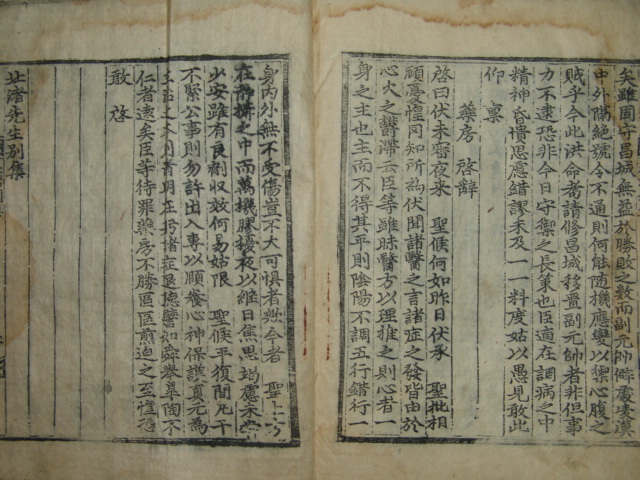 矣雖固守昌城無益於勝敗之數而副元帥僻處凌漢
中外隔絶號令不通則何能随機應變以禦心腹之
賊乎今此洪命耈請修昌城移置副元帥者非但事
力不逮恐非今日守禦之長策也臣適在調病之中
精神昏憒思慮錯謬未及一一料度姑以愚見敢此
仰禀
藥房啓辭
啓曰伏未審夜来聖候何如昨日伏承聖批相
顧憂惶罔知所爲伏聞諸醫之言諸症之發皆由於
心火之欝滯云臣等雖昧醫方以理推之則心者一
身之主也主而不得其平則陰陽不調五行錯行一
身內外無不受傷豈不大可惧者㢤今者聖上方
在靜攝之中而萬機膠擾夜以維日焦思竭慮未嘗
少安雖有良劑収效何易姑限聖候平復間凡干
不緊公事則勿許出入專以順養心神保護眞元爲
仁者遠矣臣等待罪藥房不勝區區煎迫之至惶恐
敢啓
北渚先生別集